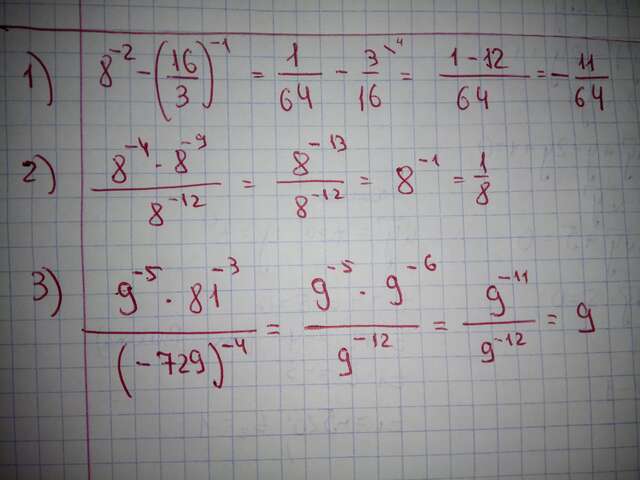 1) 8⁻² - (16/3)⁻¹ = 1/64 - 3\⁴/16 = (1-12)/64 = -11/64
2) (8⁻⁴ · 8⁻⁹)/8⁻¹² = 8⁻¹³/8⁻¹² = 8⁻¹ = 1/8
3) (9⁻⁵ · 81⁻³)/(-729)⁻⁴ = (9⁻⁵ · 9⁻⁶)/9⁻¹² = 9⁻¹¹/9⁻¹² = 9